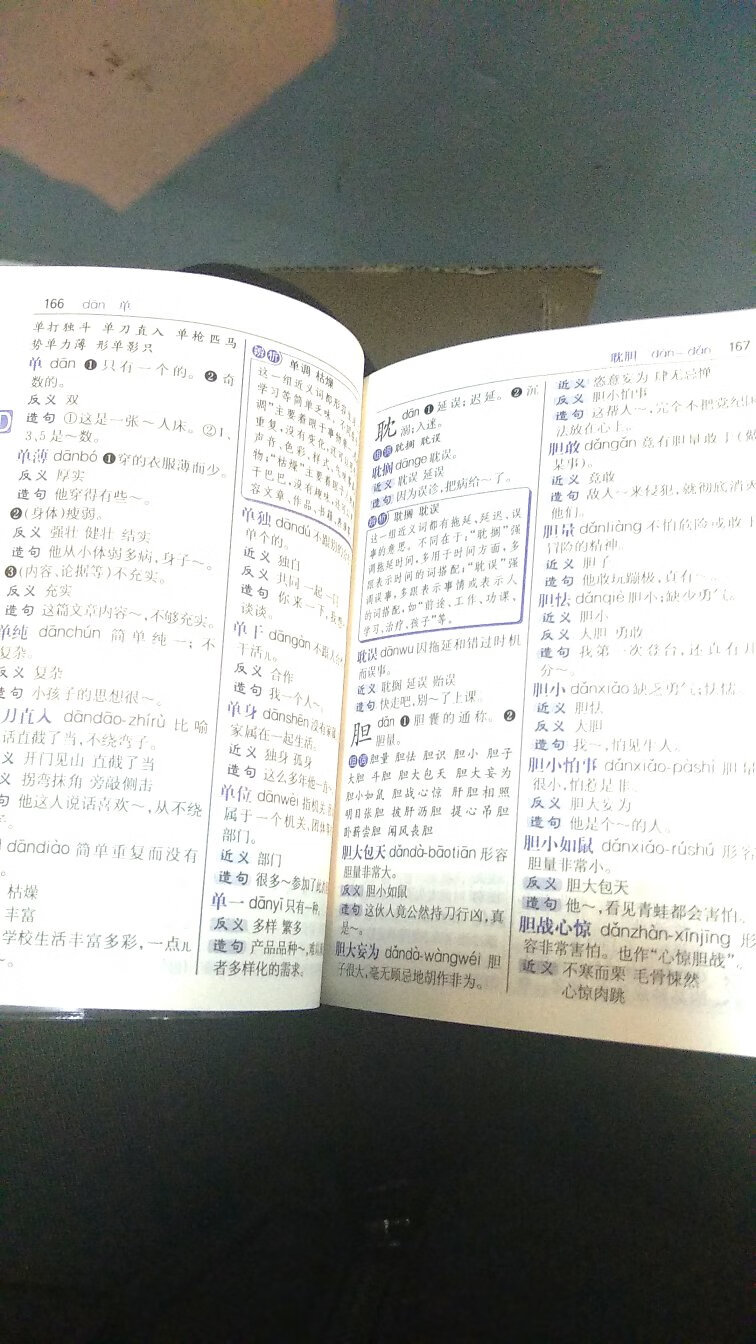 166 dān 单
单打独斗 单刀直入 单枪匹马
势单力薄 形单影只
单 dān ❶只有一个的。❷奇
数的。
反义 双
造句 ①这是一张~人床。②1、
3、5是~数。
单薄 dānbó ❶穿的衣服薄而少。
反义 厚实
造句 他穿得有些~。
❷(身体)瘦弱。
反义 强壮 健壮 结实
造句 他从小体弱多病,身子~。
❸(内容、论据等)不充实。
反义 充实
造句 这篇文章内容~,不够充实。
单纯 dānchún 简单纯一;不
复杂。
反义 复杂
造句 小孩子的思想很~。
刀直入 dāndāo-zhírù 比喻
话直截了当,不绕弯子。
义 开门见山 直截了当
义 拐弯抹角 旁敲侧击
句 他这人说话喜欢~,从不绕
dāndiào 简单重复而没有
枯燥
丰富
学校生活丰富多彩,一点儿
~。
辨析 单调 枯燥
这一组近义词都形容
学习等简单乏味。不
调”主要着眼于事物
重复,没有变化,还可以
声音、色彩、样式
物;“枯燥”主要着眼于
干巴巴,没有趣味,还可
容文章、作品、书籍
单独 dāndú 不跟别的
单个的。
近义 独自
反义 共同 一起
造句 你来一下,我想
谈谈。
单干 dāngàn 不跟人合
干活儿。
反义 合作
造句 找一个人~。
单身 dānshēn 没有家
家属在一起生活。
近义 独身 孤身
造句 这么多年他一直~
单位 dānwèi 指机关、团体
属于一个机关、团体等
部门。
近义 部门
造句 很多~参加了此
单一 dānyī 只有一种。
反义 多样 繁多
造句 产品品种~,难以
者多样化的需求。
耽胆 dān-dǎn 167
耽 dān ❶延误;迟延。❷沉
溺;入迷。
组词 耽搁 耽误
耽搁 dānge 耽误。
近义 耽误 延误
造句 因为误诊,把病给~了。
辨析 耽搁 耽误
这一组近义词都有拖延、延迟、误
事的意思。不同在于:“耽搁”强
调拖延时间,多用于时间方面,多
跟表示时间的词搭配;“耽误”强
调误事,多跟表示事情或表示人
的词搭配,如“前途、工作、功课、
学习、治疗、孩子”等。
耽误 dānwu 因拖延和错过时机
而误事。
近义 耽搁 延误 贻误
造句 快走吧,别~了上课。
胆 dǎn ❶胆囊的通称。❷
胆量。
组词 胆量 胆怯 胆识 胆小 胆子
大胆 斗胆 胆大包天 胆大妄为
胆小如鼠 胆战心惊 肝胆相照
明目张胆 披肝沥胆 提心吊胆
卧薪尝胆 闻风丧胆
胆大包天 dǎndà-bāotiān 形容
胆量非常大。
反义 胆小如鼠
造句 这伙人竟公然持刀行凶,真
是~。
胆大妄为 dǎndà-wàngwéi 胆
子很大,毫无顾忌地胡作非为。
近义 恣意妄为 肆无忌惮
反义 胆小怕事
造句 这帮人~,完全不把党纪国
法放在心上。
胆敢 dǎngǎn 竟有胆量敢于(做
某事)。
近义 竟敢
造句 敌人~来侵犯,就彻底消灭
他们。
胆量 dǎnliàng 不怕危险或敢于
冒险的精神。
近义 胆子
造句 他敢玩蹦极,真有~。
胆怯 dǎnqiè 胆小;缺少勇气。
近义 胆小
反义 大胆 勇敢
造句 我第一次登台,还真有几
分~。
胆小 dǎnxiǎo 缺乏勇气;怯懦。
近义 胆怯
反义 大胆
造句 我~,怕见生人。
胆小怕事 dǎnxiǎo-pàshì 胆量
很小,怕惹是非。
反义 胆大妄为
造句 他是个~的人。
胆小如鼠 dǎnxiǎo-rúshǔ 形容
胆量非常小。
反义 胆大包天
造句 他~,看见青蛙都会害怕。
胆战心惊 dǎnzhàn-xīnjīng 形
容非常害怕。也作“心惊胆战”。
近义 不寒而栗 毛骨悚然
心惊肉跳